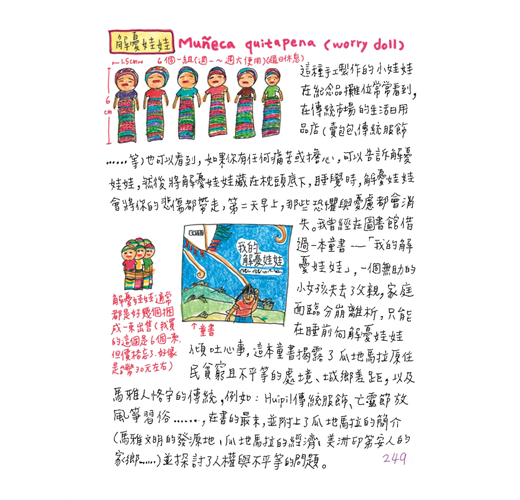 解憂娃娃 Muñeca quitapena (worry doll)
6個一組(週一~週六使用)(週日休息)
~1.5cm~
6cm
這種手工製作的小娃娃
在紀念品攤位常常看到,
在傳統市場的生活日用
品店(賣包包,傳統服飾
……等)也可以看到,如果你有任何痛苦或擔心,可以告訴解憂
娃娃,然後將解憂娃娃藏在枕頭底下,睡覺時,解憂娃娃
會將你的悲傷都帶走,第二天早上,那些恐懼與憂慮都會消
失。我曾經在圖書館借
過一本童書——「我的解
憂娃娃」,一個無助的
小女孩失去了父親,家庭
面臨分崩離析,只能
在睡前向解憂娃娃
傾吐心事,這本童書揭露了瓜地馬拉原住
民貧窮且不平等的處境、城鄉差距,以及
馬雅人恪守的傳統,例如:Huipil傳統服飾、亡靈節放
風箏習俗……,在書的最末,並附上了瓜地馬拉的簡介
(馬雅文明的發源地、瓜地馬拉的經濟、美洲印第安人的
家鄉……)並探討了人權與不平等的問題。
我的
解憂娃娃
↑童書
解憂娃娃通常
都是好幾個捆
成一束出售(我買
的這個是6個一束,
但價格忘了,好像
是台幣30元左右)
249